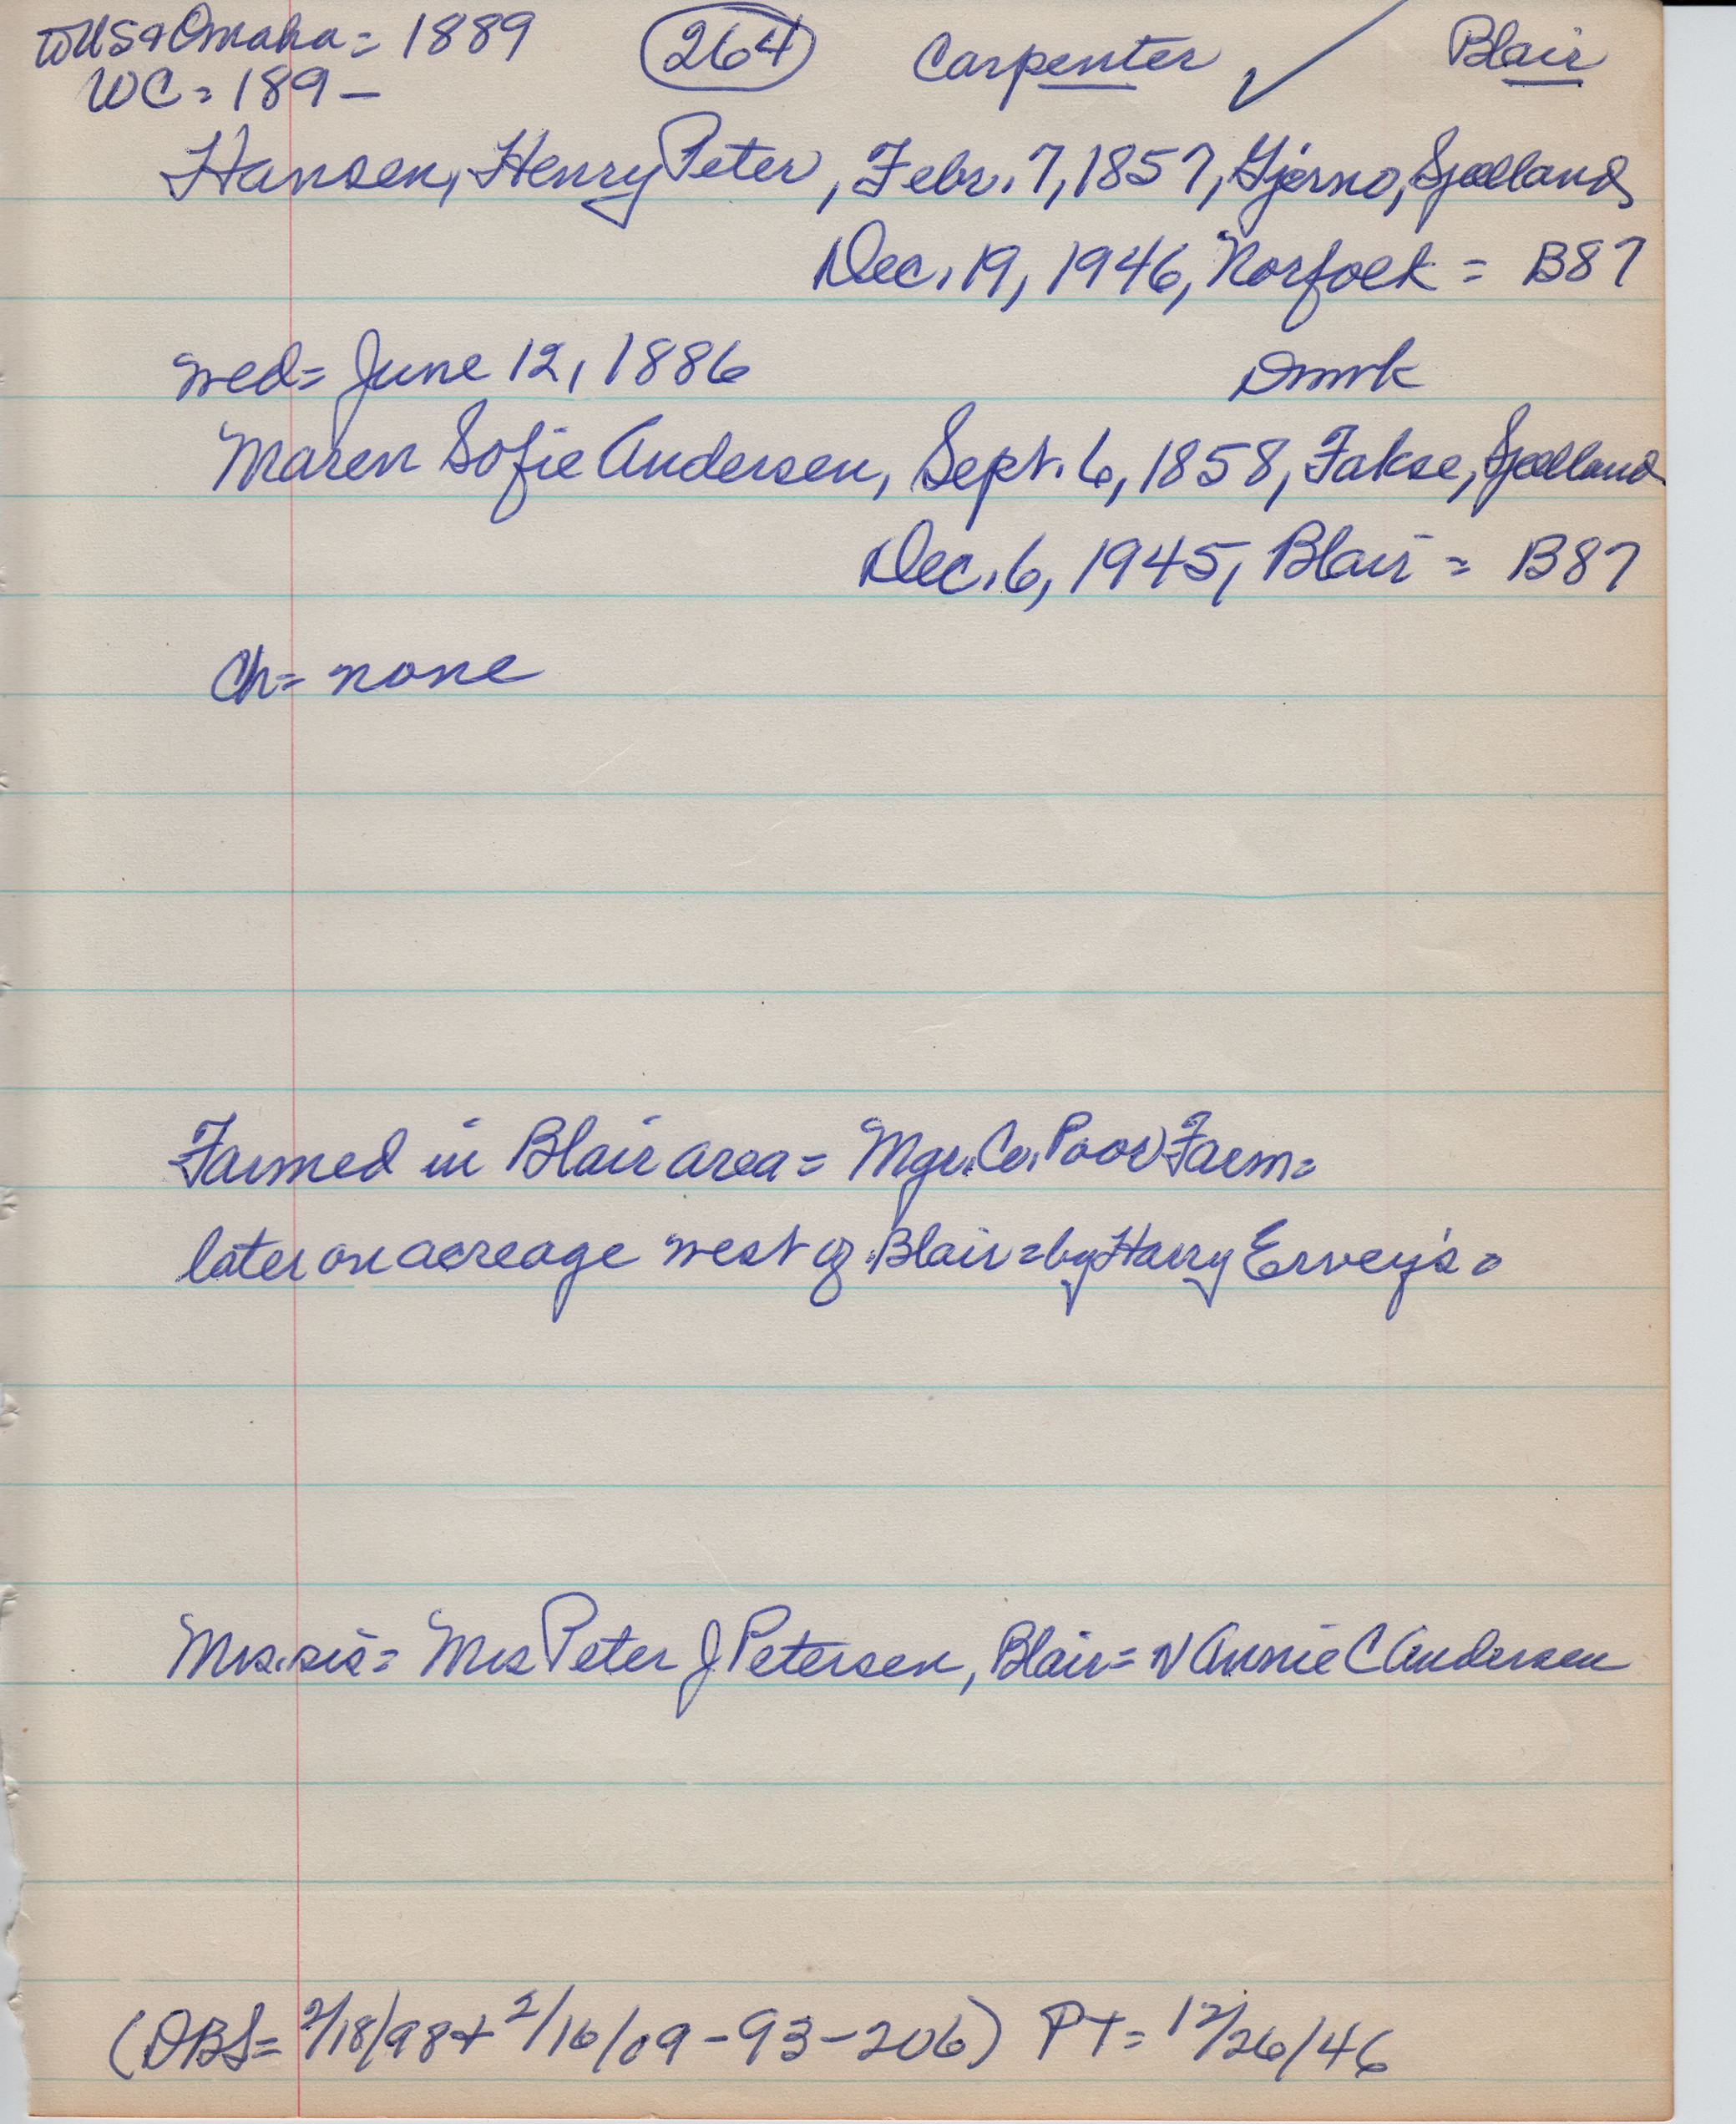 to US & Omaha = 1889 (264) Carpenter ✓ Blair
WC = 189 –
Hansen, Henry Peter, Febr. 7, 1857, Gjerno, Sjælland
Dec. 19, 1946, Norfolk = B87
wed = June 12, 1886 Dnmrk
Maren Sofie Andersen, Sept. 6, 1858, Fakse, Sjælland
Dec. 6, 1945, Blair = B87
Ch = none
Farmed in Blair area = Mgr. Co. Poor Farm =
later on acreage west of Blair = by Harry Ervey's =
Mrs. sis = Mrs Peter J Petersen, Blair = N Annie C Andersen
(DBS = 2/18/98 + 2/16/09 – 93 – 206) PT = 12/26/46